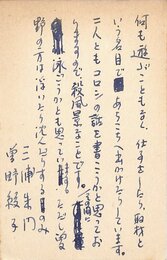 何も遊ぶこともなく、仕事をしたり、取材と
いう名目であちこちへ出かけたりしています。
二人ともコロンの話を書こうかと思ってお
りますので、殺風景なことです。
泳ごうかとも思っています。ただし曽
野の方は浮いたり沈んだりするのみ
三浦朱門
曽野綾子